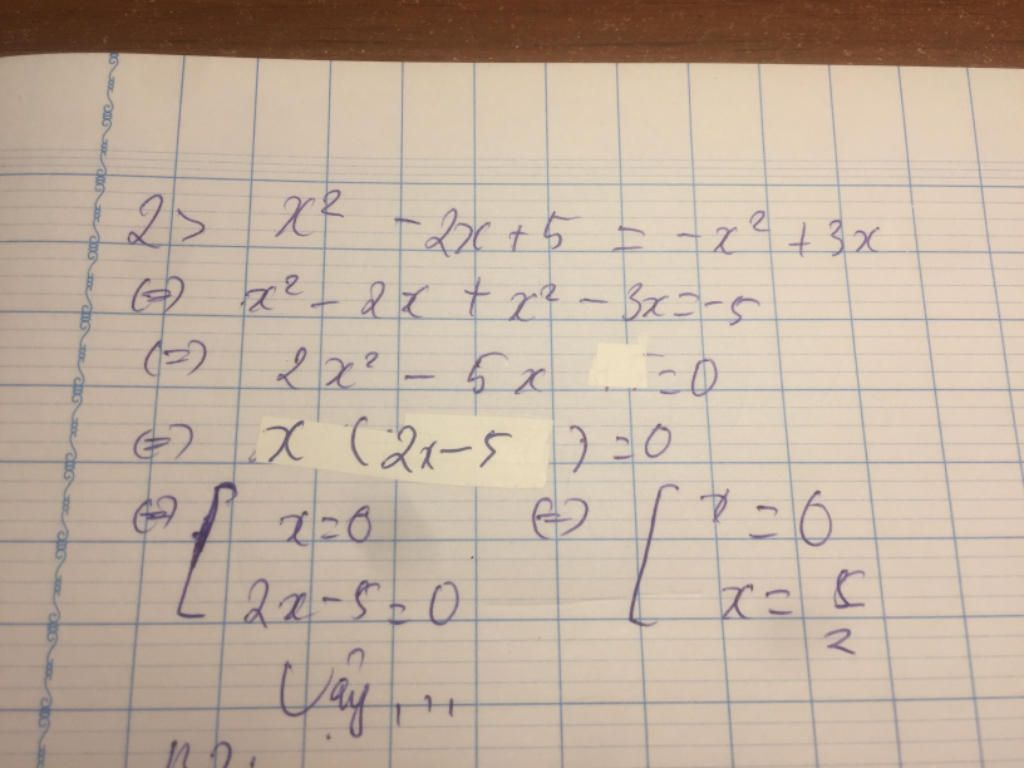 2> x² - 2x + 5 = -x² + 3x
(=) x² - 2x + x² - 3x = -5
(=) 2x² - 5x = 0
(=) x (2x - 5) = 0
(=) [ x = 0 (=) [ x = 0
2x - 5 = 0 x = 5/2
Vậy ...